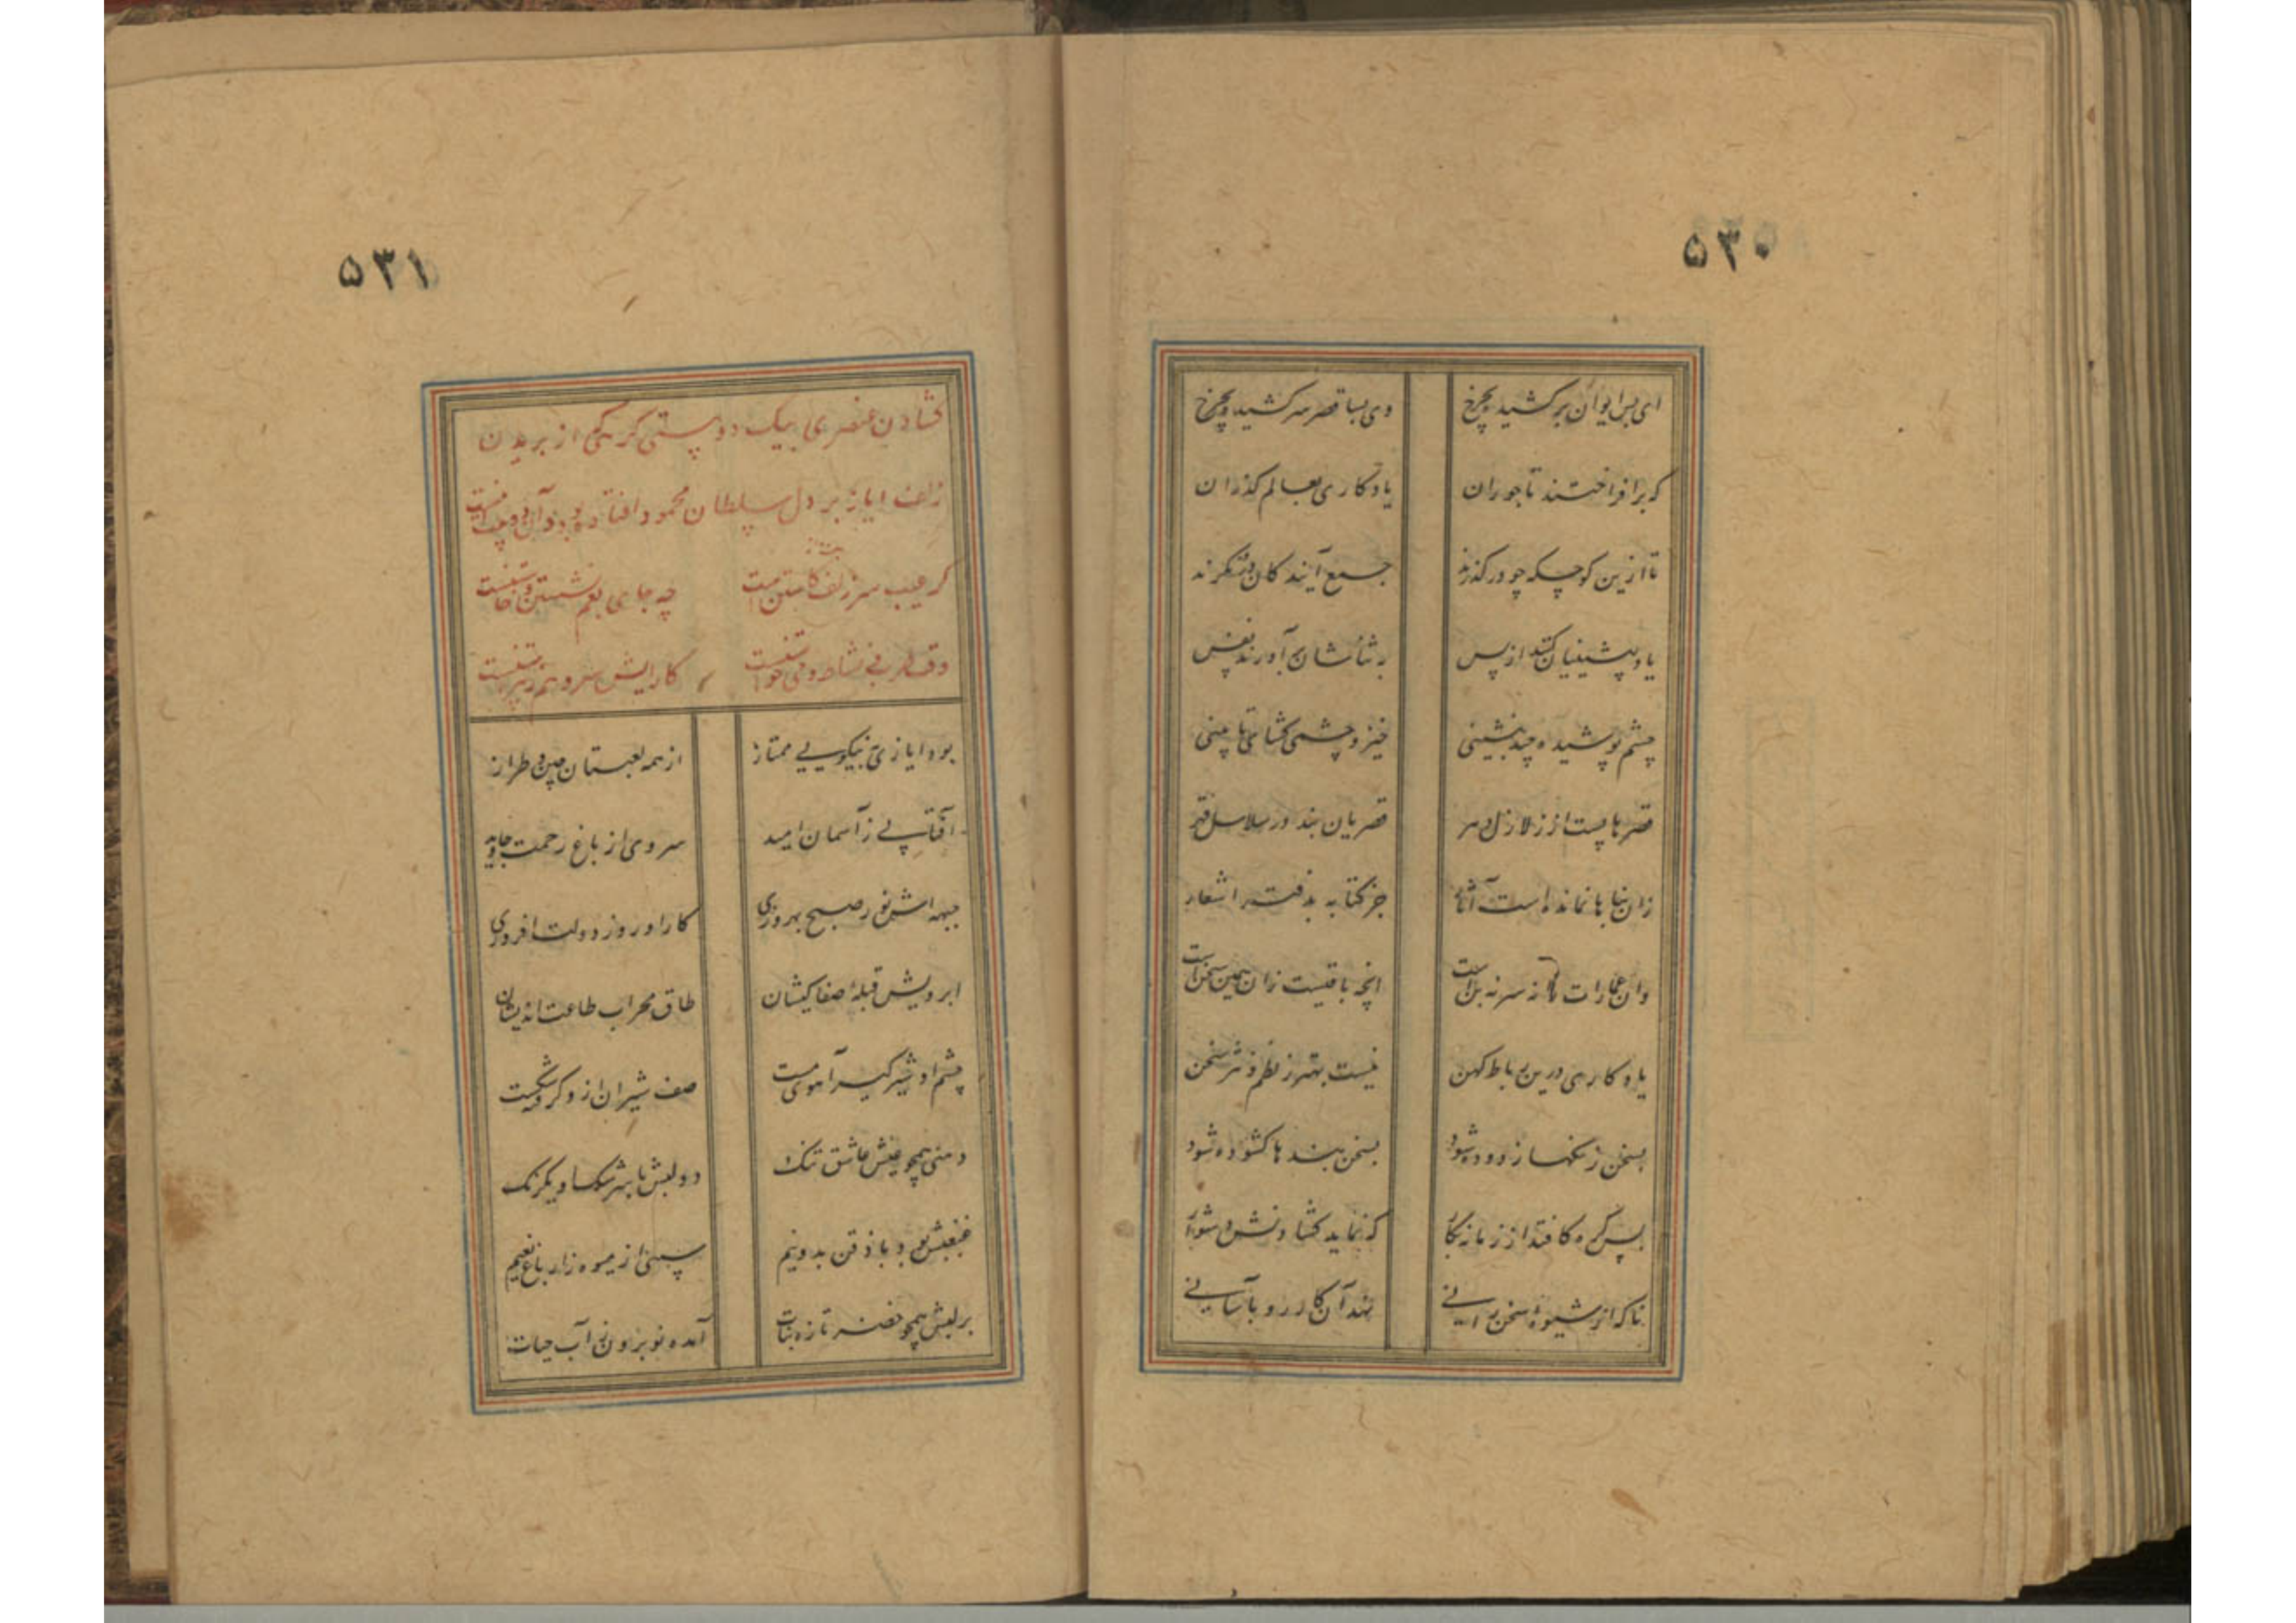 ۵۳۰
ای بس ایوان بر کشیده بچرخ وی بسا قصر سر کشیده بچرخ
که برافراختند تاجوران یادکاری بعالم گذران
تا ازین کوچکه چو درگذرند جمع آیندگان درو نگرند
یاد پیشینیان کنند از پس به ثناشان برآورند نفس
چشم پوشیده چند بنشینی خیز و چشمی گشای تا بینی
قصرها پست از زلازل دهر قصریان بند در سلاسل قهر
زان بناها نمانده است آثار جز کتابه بدفتر اشعار
وان عمارات را نه سر نه بن است آنچه باقیست زان همین سخن است
یادکاری درین رباط کهن نیست بهتر ز نظم و نثر سخن
بسخن زنگها زدوده شود بسخن بندها کشوده شود
بس کره کافتد از زمانه بکار که نماید کشادنش دشوار
ناکه از شیوهٔ سخن رانی نهد آن کار رو بآسانی
۵۳۱
کشادن عنصری بیک دو بیتی کرهی که از بریدن
زلف ایاز بر دل سلطان محمود افتاده بود و آن دو بیتی اینست
کر عیب سر زلف بت از کاستن است چه جای بغم نشستن و خاستن است
وقت طرب و نشاط و می خواستن است کارایش سرو هم ز پیراستن است
بود ایازی به نیکویی ممتاز از همه لعبتان چین و طراز
آفتابی ز آسمان امید سروی از باغ رحمت جاوید
جبهه اش نور صبح بهروزی کار او روز دولت افروزی
ابرویش قبلهٔ صفا کیشان طاق محراب طاعت اندیشان
چشم او شیر گیر آهوی مست صف شیران ازو گرفته شکست
دهنی همچو عیش عاشق تنک دو لبش با شکر یکرنک
غبغبش بود با ذقن بدو نیم سیبی از میوه زار باغ نعیم
بر لبش همچو خضر تازه نبات آمده نو برون ز آب حیات